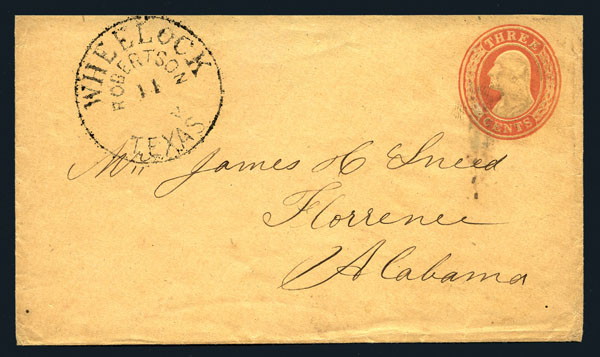 WHEELOCK
ROBERTSON
11
TEXAS
THREE
CENTS
James H Sneed
Florrence
Alabama